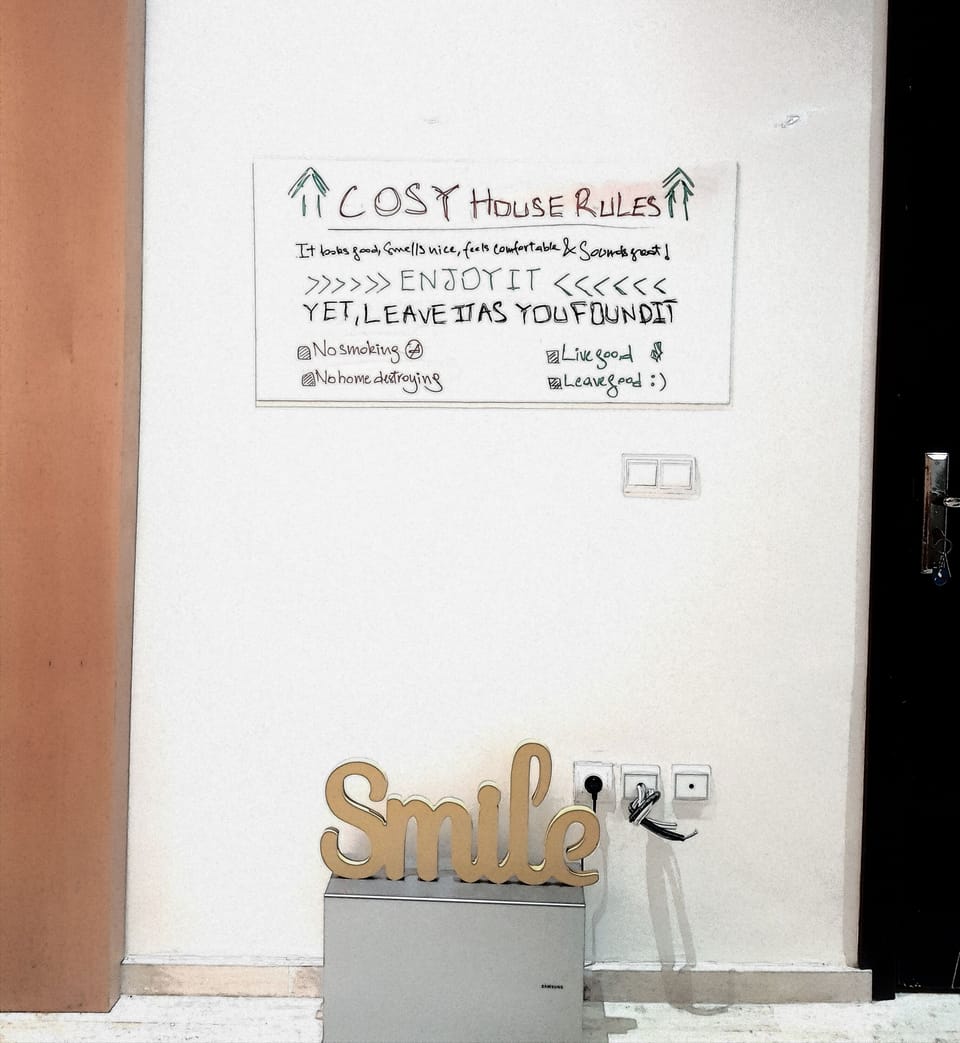 COSY HOUSE RULES
It looks good, smells nice, feels comfortable & Sounds great!
>>>>>> ENJOY IT <<<<<<
YET, LEAVE IT AS YOU FOUND IT
No smoking
Live good $
No home destroying
Leave good :)
Smile
SAMSUNG